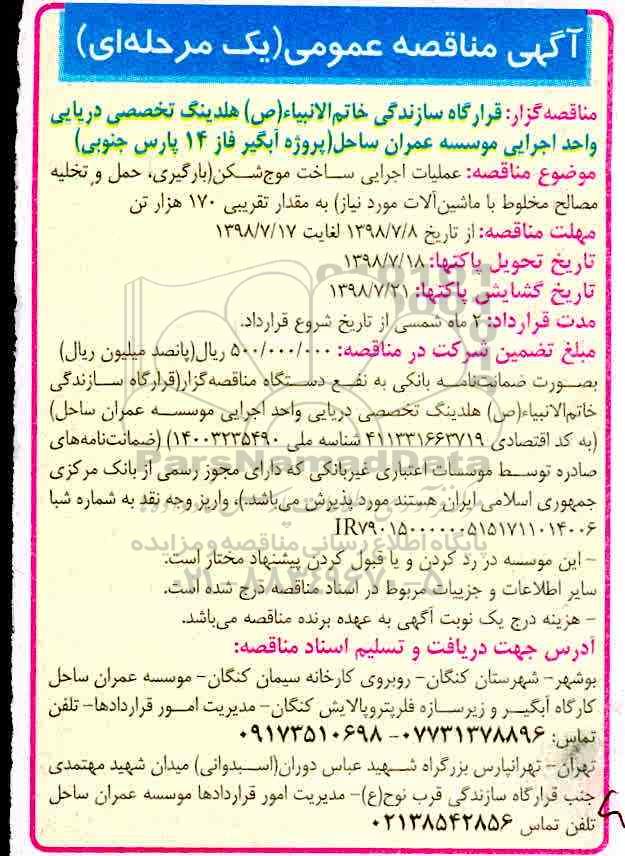 آگهی مناقصه عمومی(یک مرحله‌ای)
مناقصه‌گزار: قرارگاه سازندگی خاتم‌الانبیاء(ص) هلدینگ تخصصی دریایی
واحد اجرایی موسسه عمران ساحل(پروژه آبگیر فاز ۱۴ پارس جنوبی)
موضوع مناقصه: عملیات اجرایی ساخت موج‌شکن(بارگیری، حمل و تخلیه
مصالح مخلوط با ماشین‌آلات مورد نیاز) به مقدار تقریبی ۱۷۰ هزار تن
مهلت مناقصه: از تاریخ ۱۳۹۸/۷/۸ لغایت ۱۳۹۸/۷/۱۷
تاریخ تحویل پاکتها: ۱۳۹۸/۷/۱۸
تاریخ گشایش پاکتها: ۱۳۹۸/۷/۲۱
مدت قرارداد: ۲ ماه شمسی از تاریخ شروع قرارداد.
مبلغ تضمین شرکت در مناقصه: ۵۰۰/۰۰۰/۰۰۰ ریال(پانصد میلیون ریال)
بصورت ضمانت‌نامه بانکی به نفع دستگاه مناقصه‌گزار(قرارگاه سازندگی
خاتم‌الانبیاء(ص) هلدینگ تخصصی دریایی واحد اجرایی موسسه عمران ساحل)
(به کد اقتصادی ۴۱۱۳۳۱۶۶۳۷۱۹ شناسه ملی ۱۴۰۰۳۲۳۵۴۹۰) (ضمانت‌نامه‌های
صادره توسط موسسات اعتباری غیربانکی که دارای مجوز رسمی از بانک مرکزی
جمهوری اسلامی ایران هستند مورد پذیرش می‌باشد.)، واریز وجه نقد به شماره شبا
IR۷۹۰۱۵۰۰۰۰۰۰۵۱۵۱۷۱۱۰۱۴۰۰۶
– این موسسه در رد کردن و یا قبول کردن پیشنهاد مختار است.
سایر اطلاعات و جزییات مربوط در اسناد مناقصه درج شده است.
– هزینه درج یک نوبت آگهی به عهده برنده مناقصه می‌باشد.
آدرس جهت دریافت و تسلیم اسناد مناقصه:
بوشهر– شهرستان کنگان– روبروی کارخانه سیمان کنگان– موسسه عمران ساحل
کارگاه آبگیر و زیرسازه فلرپتروپالایش کنگان– مدیریت امور قراردادها– تلفن
تماس: ۰۷۷۳۱۳۷۸۸۹۶– ۰۹۱۷۳۵۱۰۶۹۸
تهران– تهرانپارس بزرگراه شهید عباس دوران(اسبدوانی) میدان شهید مهتمدی
جنب قرارگاه سازندگی قرب نوح(ع)– مدیریت امور قراردادها موسسه عمران ساحل
تلفن تماس ۰۲۱۳۸۵۴۲۸۵۶
ParsNamadData
پایگاه اطلاع رسانی مناقصه و مزایده
۰۲۱-۸۸۳۴۹۶۷۰-۵